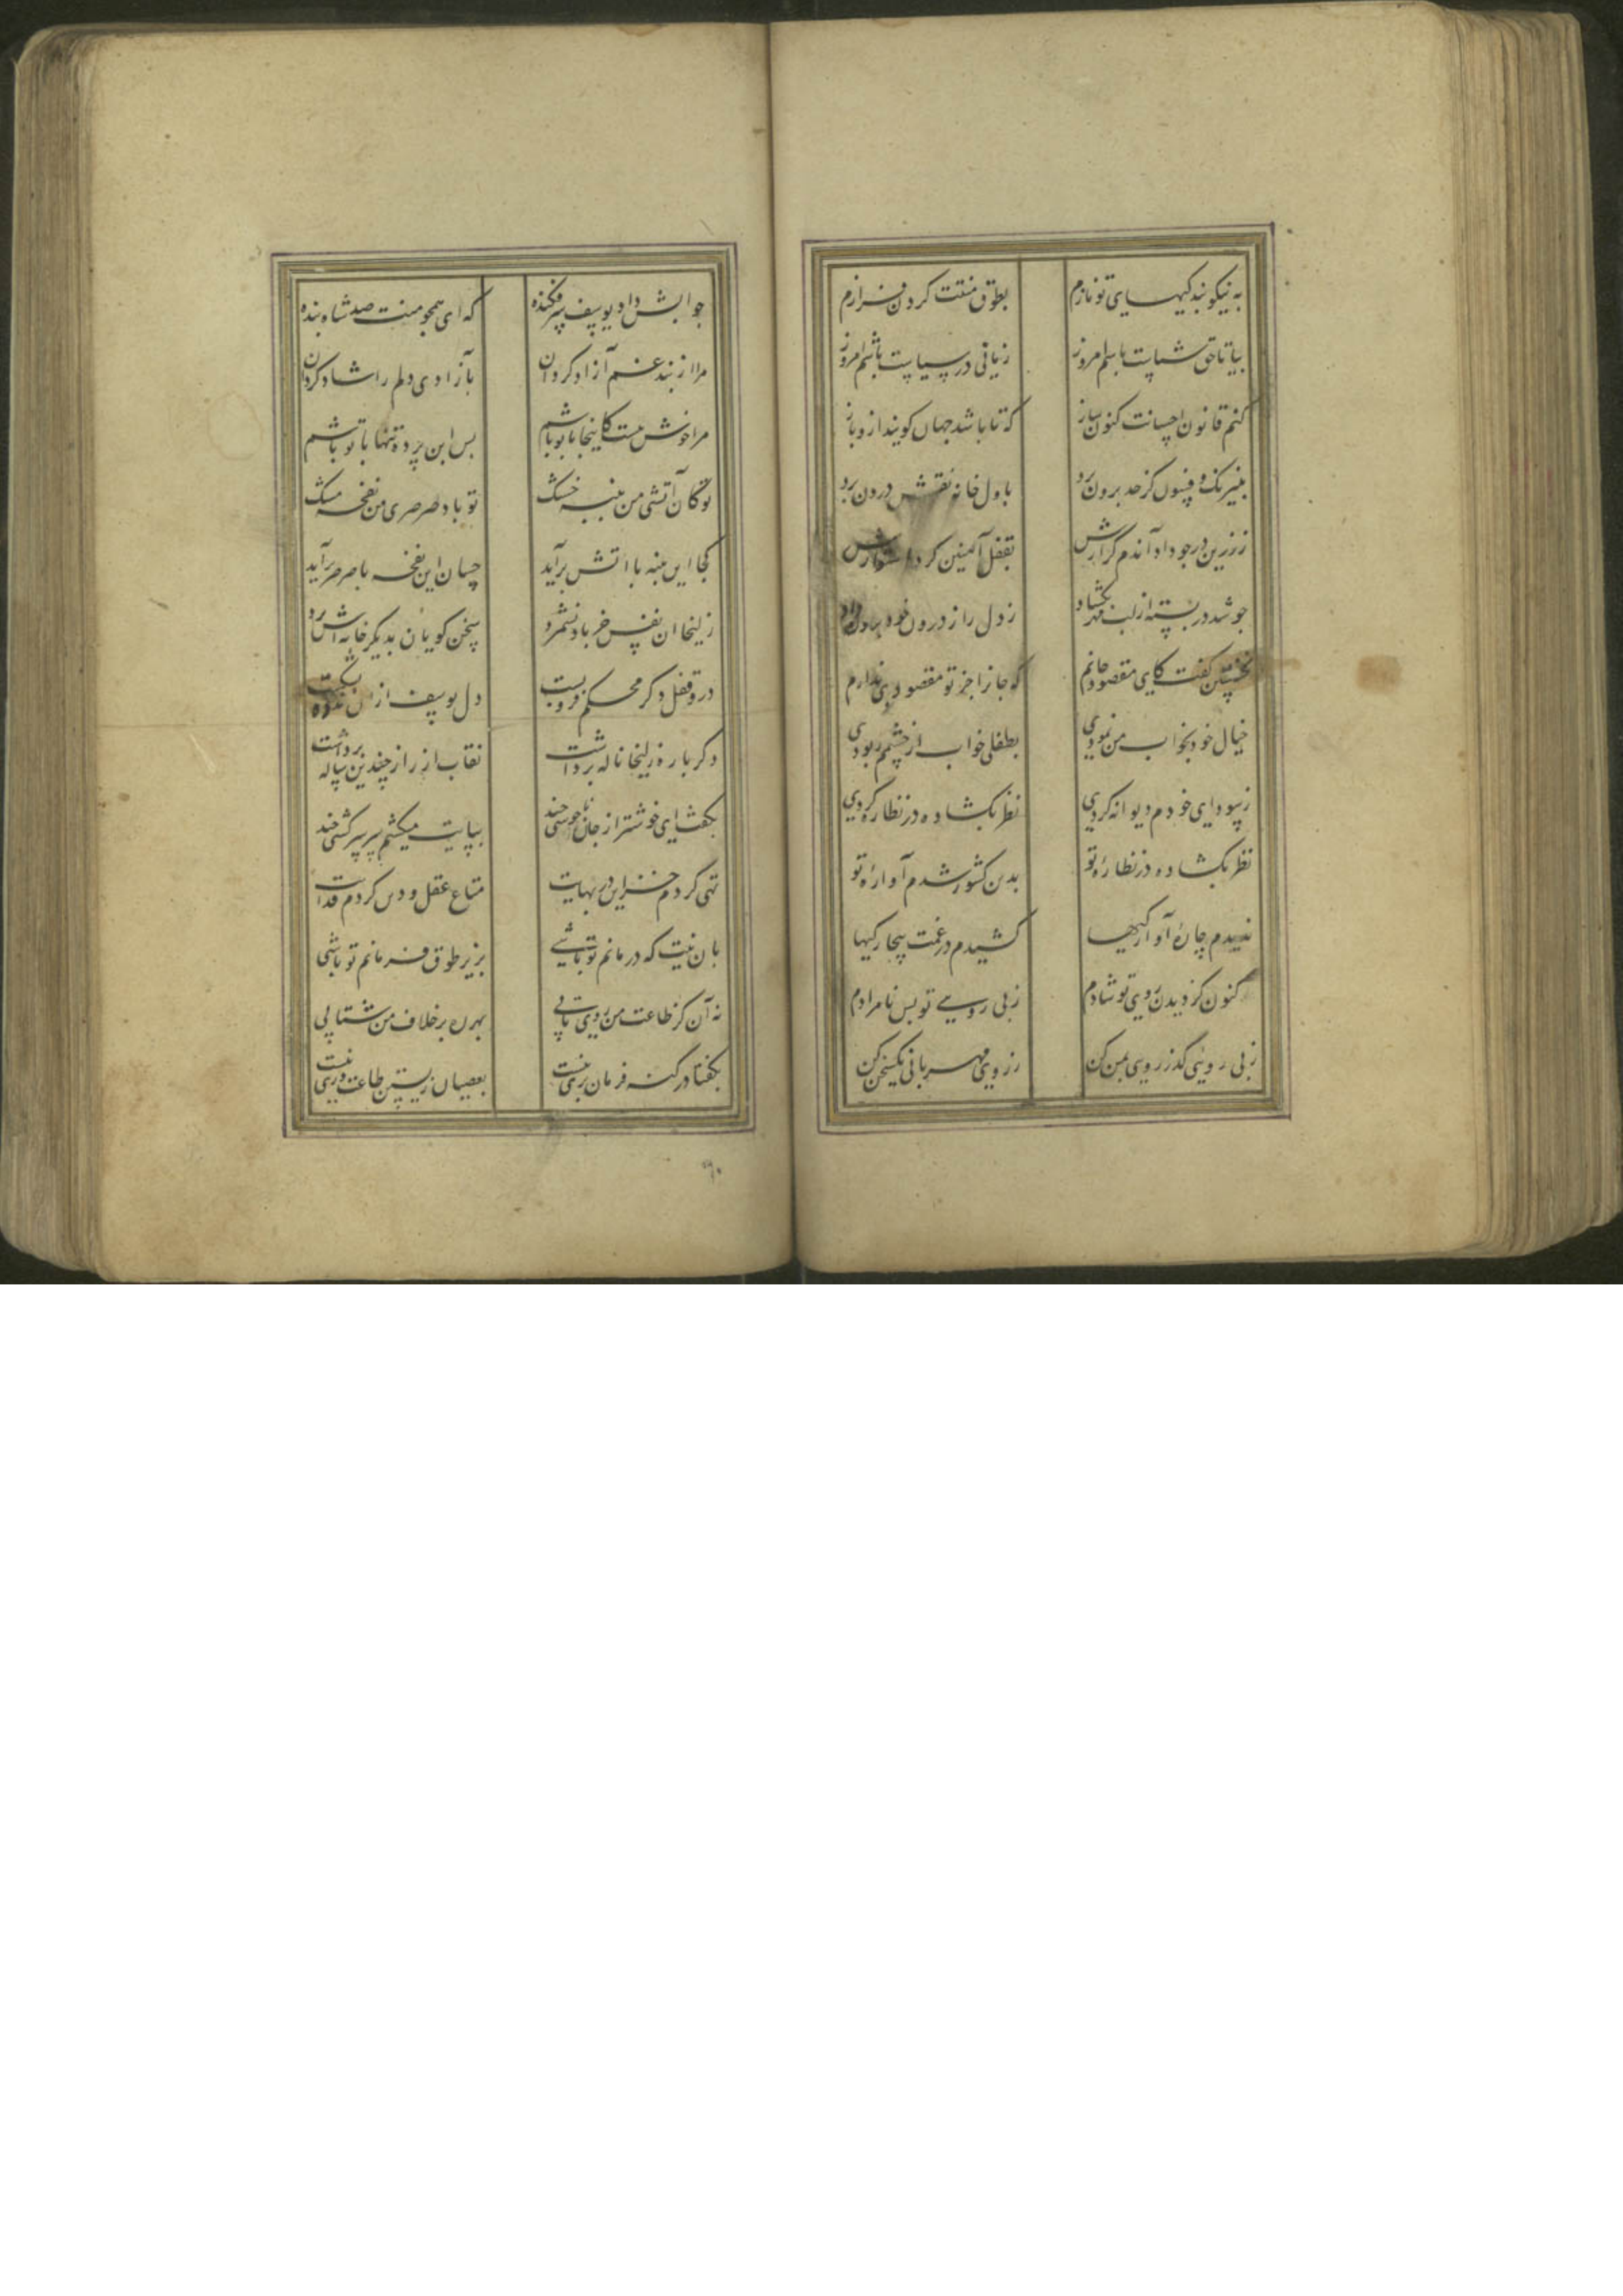 به نیکو بندکیهای تو نازم بطوق منتت کردن فرازم
بیا تا حق شناست باشم امروز زمانی در سپاست باشم امروز
کنم قانون احسانت کنون ساز که تا باشد جهان کویند ازو باز
بنیرنک و فسون کز حد برون برد باول خانه نقرش درون برد
ز زرین در جو داد آندم گزارش بقفل آهنین کرد استوارش
جو شد در بسته از لب مهر بکشاد ز دل راز درون خود برون داد
نخستین کفت کای مقصود جانم که جانرا جز تو مقصودی ندارم
خیال خود بخواب من نمودی بطفلی خواب از چشمم ربودی
ز سودای خودم دیوانه کردی نظر بکشاده در نظاره کردی
نظر بکشاده در نظارهٔ تو بدین کشور شدم آوارهٔ تو
ندیدم چارهٔ آوارکیها کشیدم در غمت بیجارکیها
کنون کز دیدن روی تو شادم ز بی رویی تو بس نامرادم
ز بی رویی کذر روی بمن کن ز روی مهربانی یکسخن کن
جوابش داد یوسف سر فکنده که ای همجو منت صد شاه بنده
مرا از بند غم آزاد کردان بآزادی دلم را شاد کردان
مرا خوش نیست کاینجا با تو باشم پس این پرده تنها با تو باشم
تو کان آتشی من پنبه خشک تو باد صرصری من نفحه مشک
کجا این پنبه با آتش برآید چسان این نفحه با صرصر برآید
زلیخا ان نفس جز باد نشمرد سخن کویان بدیکر خانه اش برد
درو قفل دکر محکم فرو بست دل یوسف ازان اندوه بشکست
دکر باره زلیخا ناله برداشت نقاب از راز چندین ساله برداشت
بکفت ای خوشتر از جان ناخوشی چند بپایت میکشم سر سرکشی چند
تهی کردم خزاین در بهایت متاع عقل و دین کردم فدایت
بان نیت که درمانم تو باشی بزیر طوق فرمانم تو باشی
نه آن کز طاعت من روی تابی بهر ره بر خلاف من شتابی
بکفتا در کنه فرمان بری نیست بعصیان زیستن طاعت وری نیست